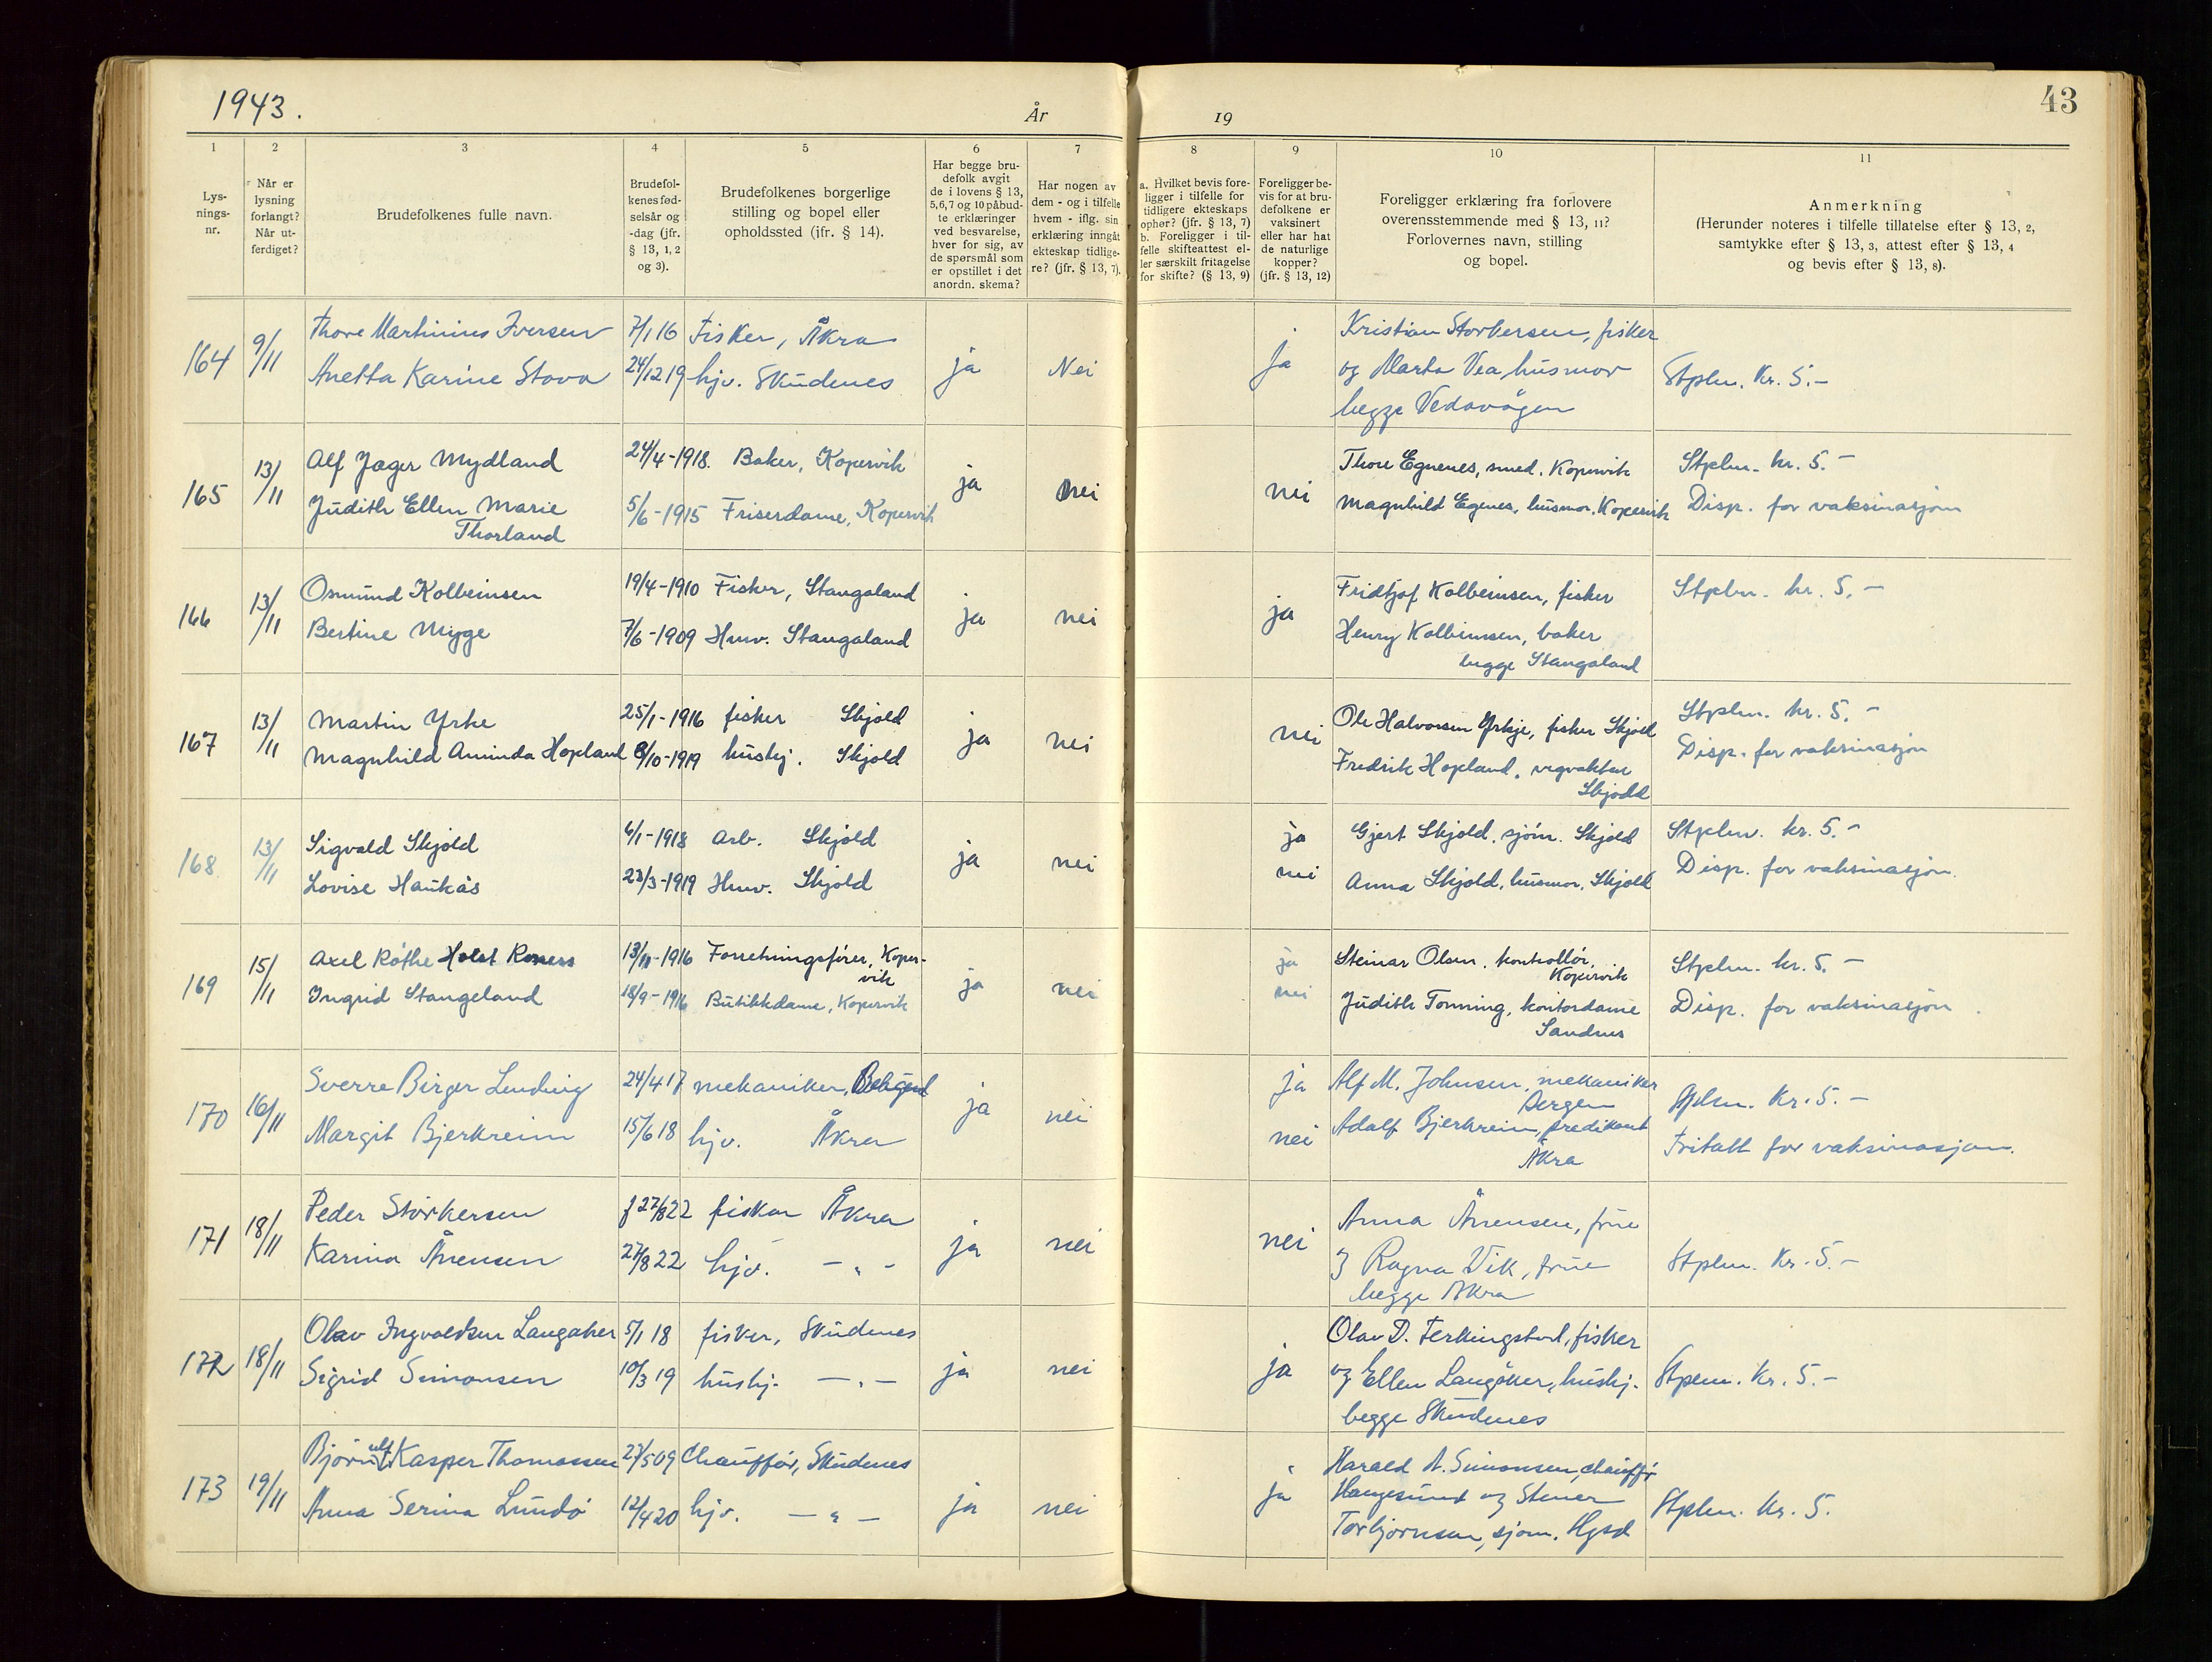 1943.
År
19
43
1
2
3
4
5
6
7
8
9
10
11
Lys-
nings-
nr.
Når er
lysning
forlangt?
Når ut-
ferdiget?
Brudefolkenes fulle navn.
Brudefol-
kenes fød-
selsår og
-dag (jfr.
§ 13, 1, 2
og 3).
Brudefolkenes borgerlige
stilling og bopel eller
opholdssted (jfr. § 14).
Har begge bru-
defolk avgit
de i lovens § 13,
5, 6, 7 og 10 påbud-
te erklæringer
ved besvarelse,
hver for sig, av
de spørsmål som
er opstillet i det
anordn. skema?
Har nogen av
dem - og i tilfelle
hvem - iflg. sin
erklæring inngåt
ekteskap tidlige-
re? (jfr. § 13, 7).
a. Hvilket bevis fore-
ligger i tilfelle for
tidligere ekteskaps
ophør? (jfr. § 13, 7)
b. Foreligger i til-
felle skifteattest el-
ler særskilt fritagelse
for skifte? (§ 13, 9)
Foreligger be-
vis for at bru-
defolkene er
vaksinert
eller har hat
de naturlige
kopper?
(jfr. § 13, 12)
Foreligger erklæring fra forlovere
overensstemmende med § 13, 11?
Forlovernes navn, stilling
og bopel.
Anmerkning
(Herunder noteres i tilfelle tillatelse efter § 13, 2,
samtykke efter § 13, 3, attest efter § 13, 4
og bevis efter § 13, 8).
164 9/11
Thore Martinius Iversen 7/1 16 Fisker, Åkra
Anetta Karine Stava 24/12 19 hjv. Skudenes
ja Nei ja
Kristian Storkersen, fisker
og Marta Vea, husmor
begge Vedavågen
Stplm. Kr. 5.-
165 13/11
Alf Jæger Mydland 24/4-1918. Baker, Kopervik
Judith Ellen Marie 5/6-1915 Friserdame, Kopervik
Thorland
ja nei nei
Thore Egnenes, smed. Kopervik
Magnhild Egenes, husmor. Kopervik
Stplm. kr. 5.-
Disp. for vaksinasjon
166 13/11
Osmund Kolbeinsen 19/4-1910 Fisker, Stangaland
Bertine Myge 7/6-1909 Husv. Stangaland
ja nei ja
Fridtjof Kolbeinsen, fisker
Henry Kolbeinsen, baker
begge Stangaland
Stplm. kr. 5.-
167 13/11
Martin Yrke 25/1-1916 fisker Skjold
Magnhild Aminda Hopland 8/10-1919 hushj. Skjold
ja nei nei
Ole Halvorsen Yrkje, fisker Skjold
Fredrik Hopland, vegvokter
Skjold
Stplm. kr. 5.-
Disp. for vaksinasjon
168 13/11
Sigvald Skjold 6/1-1918 Arb. Skjold
Lovise Haukås 23/3-1919 Husv. Skjold
ja nei
ja
nei
Gjert Skjold, sjøm. Skjold
Anna Skjold, husmor, Skjold
Stplm. kr. 5.-
Disp. for vaksinasjon.
169 15/11
Axel Röthe Holst 13/11-1916 Forretningsfører, Koper-
vik
Ingrid Stangeland 18/9-1916 Butikkdame, Kopervik
ja nei
ja
nei
Steinar Olsen, kontrollør,
Kopervik
Judith Tonning, kontordame
Sandnes
Stplm. kr. 5.-
Disp. for vaksinasjon.
170 16/11
Sverre Birger Lending 24/4 17 mekaniker,
Margit Bjerkreim 15/6 18 hjv. Åkra
ja nei
ja
nei
Alf M. Johnsen, mekaniker
Bergen
Adolf Bjerkreim, predikant
Åkra
Stplm. Kr. 5.-
Fritatt for vaksinasjon.
171 18/11
Peder Storkersen f 27/8 22 fisker Åkra
Karina Ånensen 27/8 22 hjv. -"-
ja nei nei
Anna Ånensen, frue
og Ragna Vik, frue
begge Åkra
Stplm. Kr. 5.-
172 18/11
Olav Ingvaldsen Langaker 5/1 18 fisker, Skudenes
Sigrid Simonsen 10/3 19 hushj. -"-
ja nei ja
Olav D. Ferkingstad, fisker
og Ellen Langåker, hushj.
begge Skudenes
Stplm. Kr. 5.-
173 19/11
Bjørnulf Kasper Thomassen 27/5 09 Chauffør, Skudenes
Anna Serina Lundø 12/4 20 hjv. -"-
ja nei ja
Harald A. Simonsen, chauffør
Haugesund og Stener
Torbjørnsen, sjøm. Hgsd
Stplm. kr. 5.